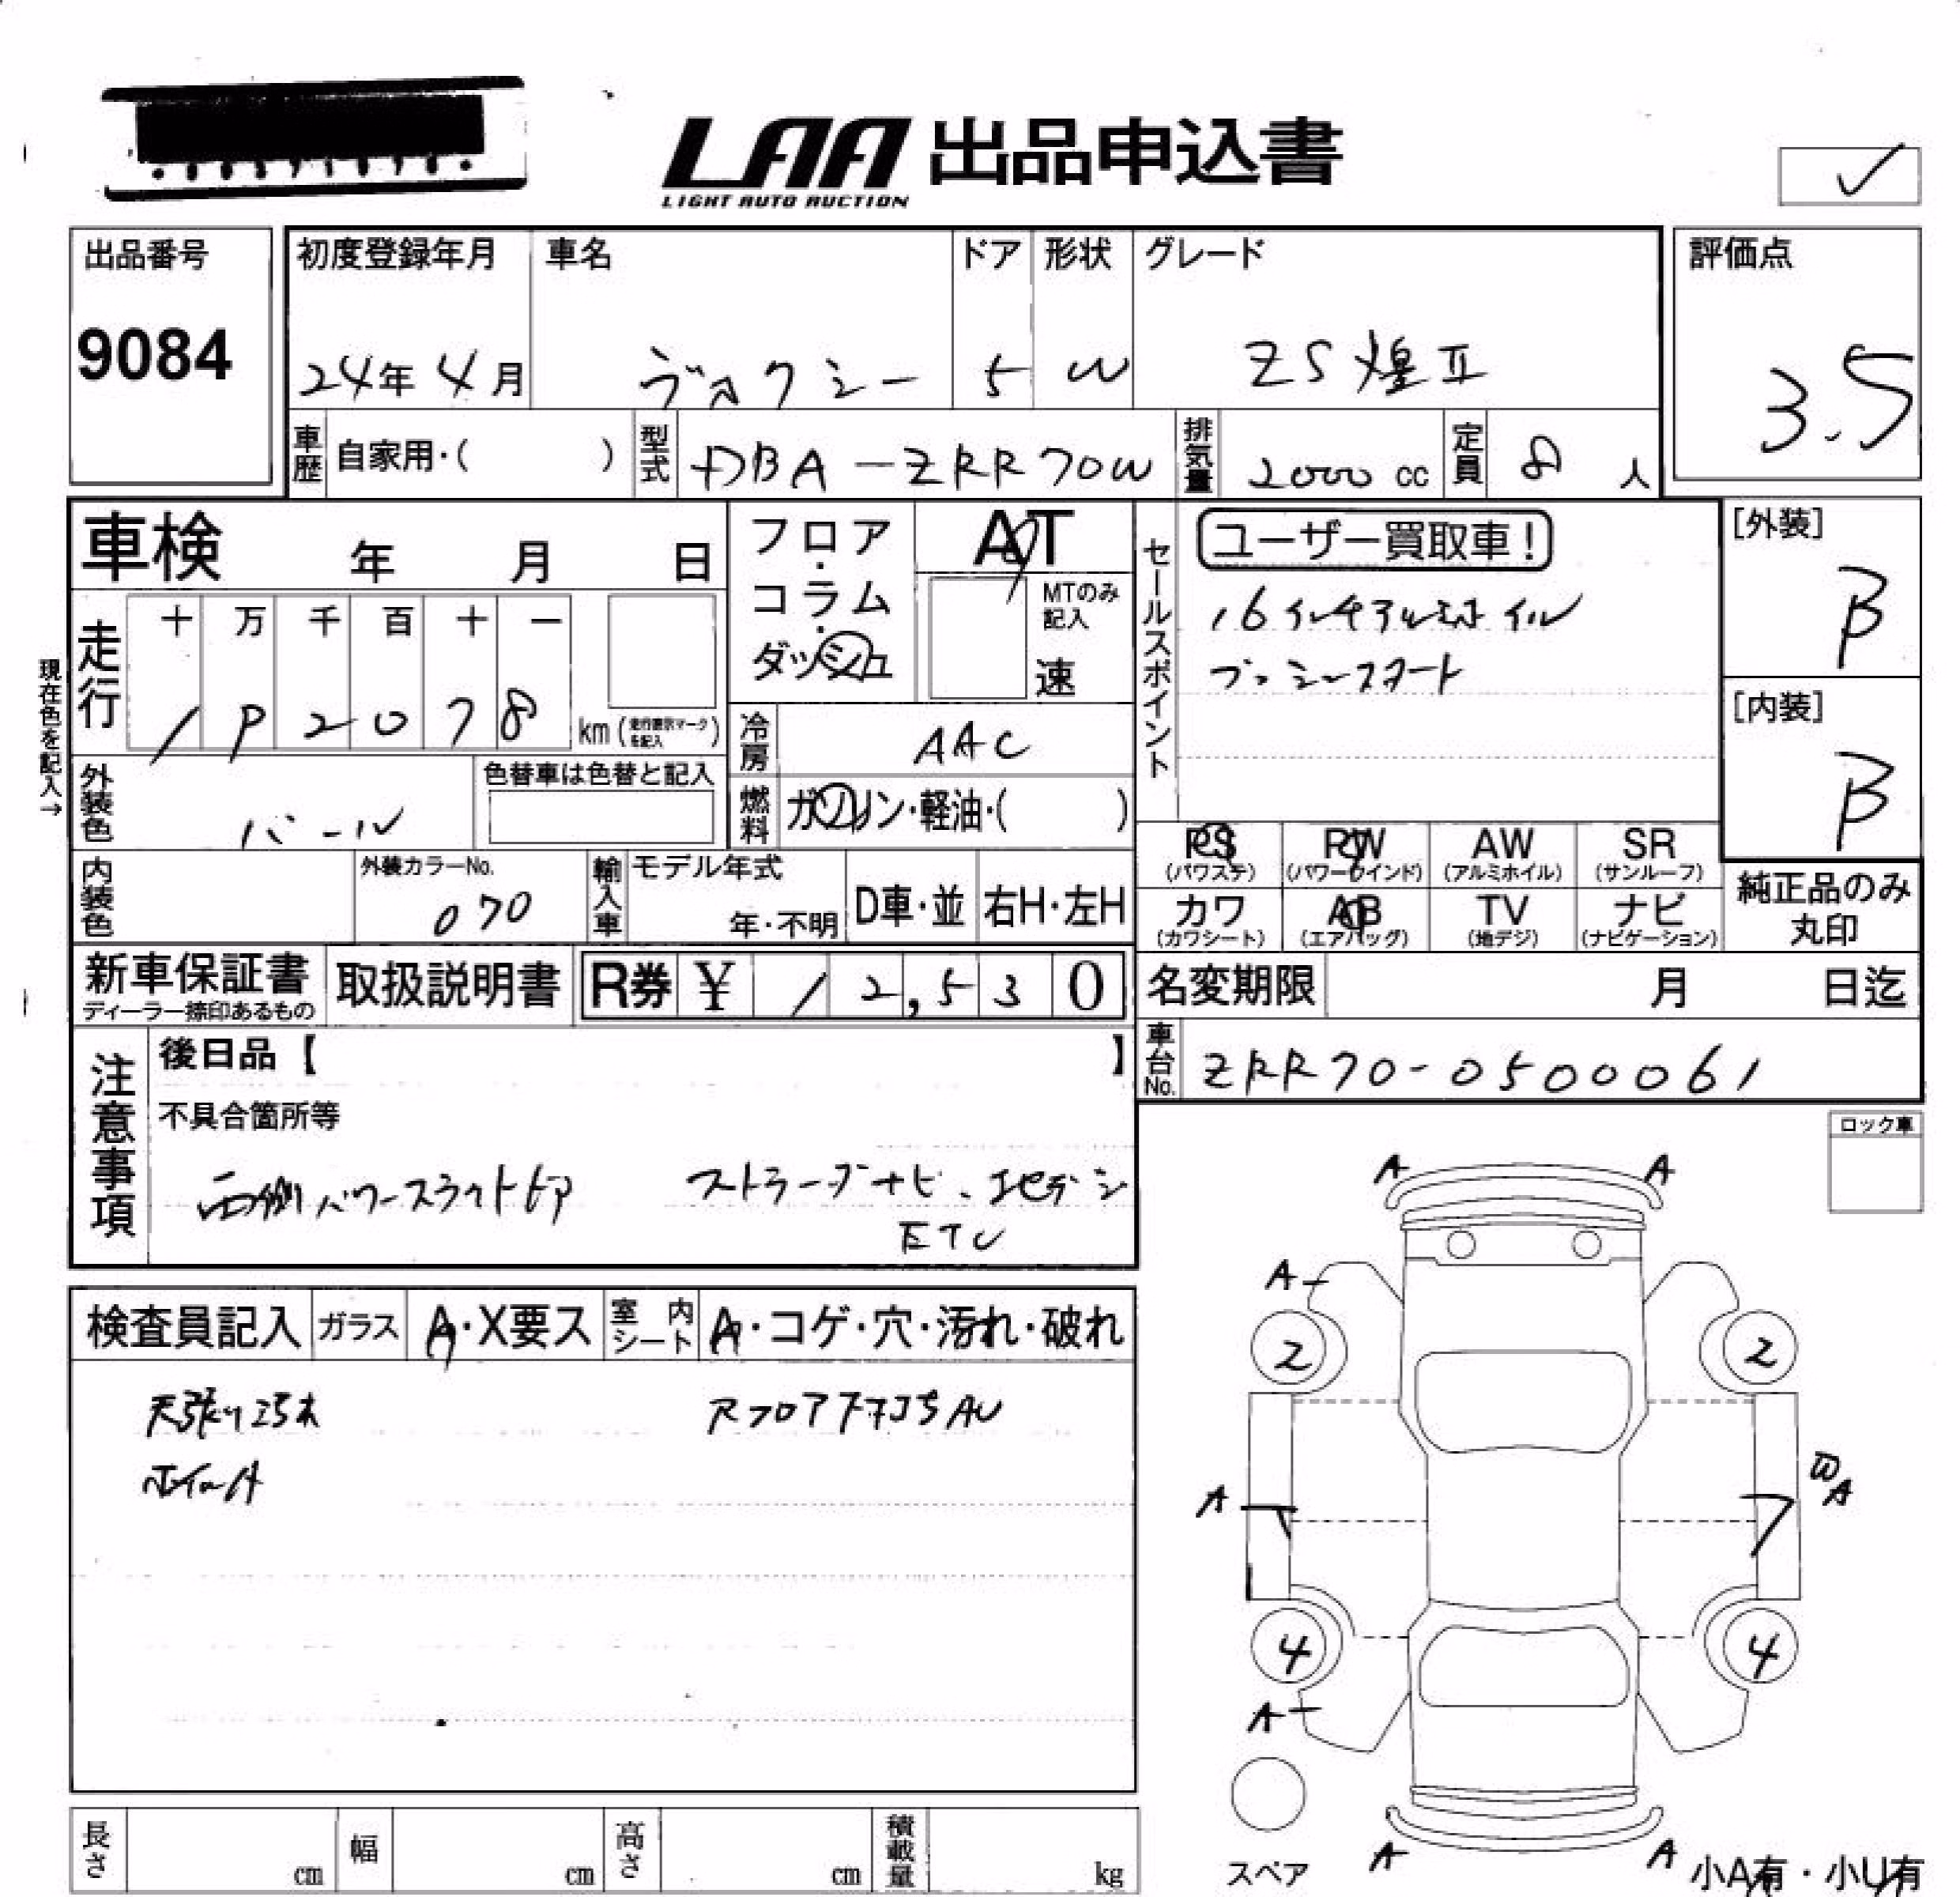 LAA 出品申込書
LIGHT AUTO AUCTION
✓
出品番号
9084
初度登録年月 車名 ドア 形状 グレード
24年 4月 ヴォクシー 5 W ZS 煌 II
評価点
3.5
車歴 自家用・( ) 型式 DBA-ZRR70W 排気量 2000 cc 定員 8 人
車検 年 月 日
フロア・コラム・ダッシュ
AT
MTのみ記入
速
セールスポイント
ユーザー買取車!
16インチアルミホイル
プッシースタート
[外装]
B
[内装]
B
現在色を記入→
走行 十 万 千 百 十 一
192078 km (走行表示マークを記入)
冷房 AAC
燃料 ガソリン・軽油・( )
外装色 パール
色替車は色替と記入
PS (パワステ) PW (パワーウインド) AW (アルミホイル) SR (サンルーフ)
カワ (カワシート) AB (エアバッグ) TV (地デジ) ナビ (ナビゲーション)
純正品のみ丸印
内装色
外装カラーNo.
070
輸入車 モデル年式
年・不明 D車・並 右H・左H
新車保証書
ディーラー捺印あるもの
取扱説明書
R券 ¥ 12,530
名変期限 月 日迄
車台No. ZRR70-0500061
注意事項
後日品【 】
不具合箇所等
両側パワースライドドア ストラーダナビ、地デジ
ETC
ロック車
検査員記入 ガラス A・X要ス 室内シート A・コゲ・穴・汚れ・破れ
天張り汚れ Rフロア AU
ホイールA
A A
A
2 2
A
B
A
4 4
A
スペア
A A
小A有・小U有
長さ cm 幅 cm 高さ cm 積載量 kg